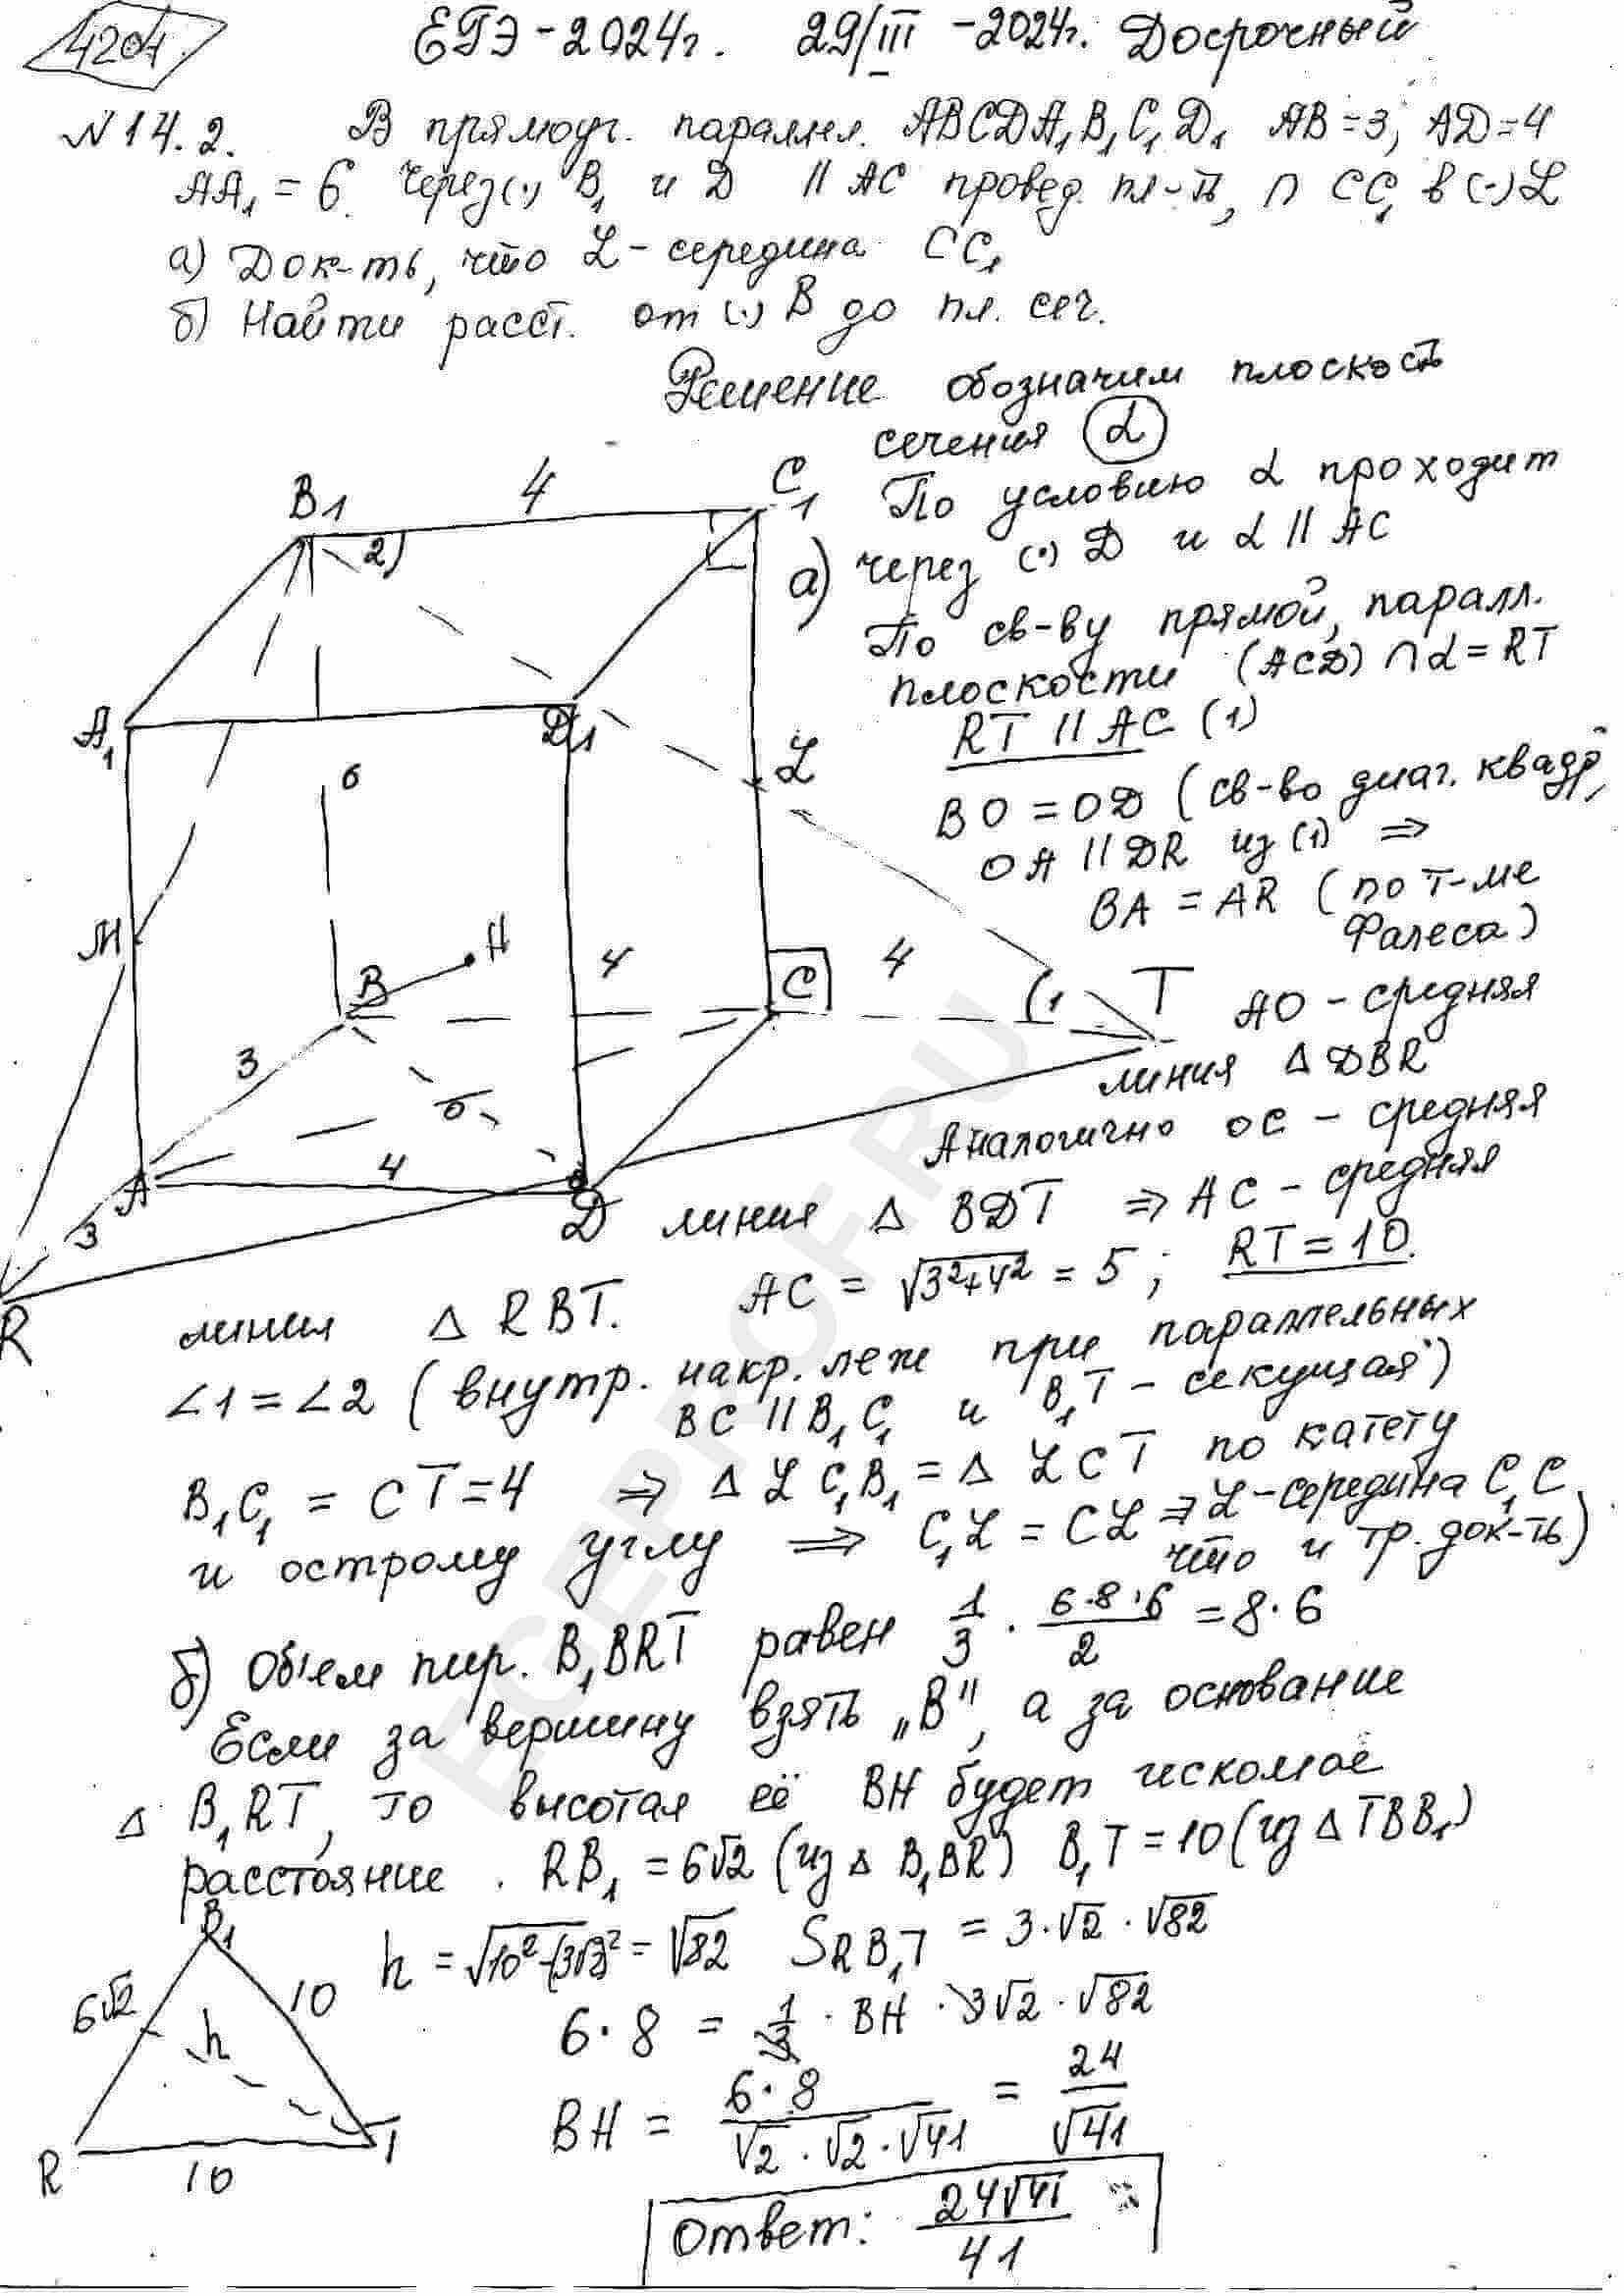 4204
ЕГЭ-2024г. 29/III-2024г. Досрочный
№14.2. В прямоуг. паралл. ABCDA₁B₁C₁D₁ AB=3; AD=4
AA₁=6. Через (·) B₁ и D || AC провед. пл-ть, ∩ CC₁ в (·) L
а) Док-ть, что L - середина CC₁
б) Найти расст. от (·) B до пл. сеч.
Решение обозначим плоскость
сечения α
По условию α проходит
а) через (·) D и α || AC
По св-ву прямой, паралл.
плоскости (ACD) ∩ α = RT
RT || AC (1)
BO = OD (св-во диаг. квадр,
OA || DR из (1) ⇒
BA = AR (по т-ме
Фалеса)
AO - средняя
линия Δ DBR
Аналогично OC - средняя
линия Δ BDT ⇒ AC - средняя
линия Δ RBT. AC = √3²+4² = 5; RT = 10.
∠1 = ∠2 (внутр. накр. леж при параллельных
BC || B₁C₁ и B₁T - секущая)
B₁C₁ = CT = 4 ⇒ Δ LC₁B₁ = Δ LCT по катету
и острому углу ⇒ C₁L = CL ⇒ L - середина C₁C
что и тр. док-ть)
б) Объем пир. B₁BRT равен 1/3 · 6·8·6/2 = 8·6
Если за вершину взять „B", а за основание
Δ B₁RT, то высотая её BH будет искомое
расстояние. RB₁ = 6√2 (из Δ B₁BR) B₁T = 10 (из Δ TBB₁)
h = √10²-(3√2)² = √82 S RB₁T = 3·√2·√82
6·8 = 1/3 · BH · 3√2 · √82
BH = 6·8/√2·√2·√41 = 24/√41
Ответ: 24√41/41
B₁
4
C₁
2)
A₁
D₁
L
6
M
H
B
4
C
4
1
T
3
O
A
4
D
3
R
B₁
6√2
10
h
R
10
T
EGEPROF.RU